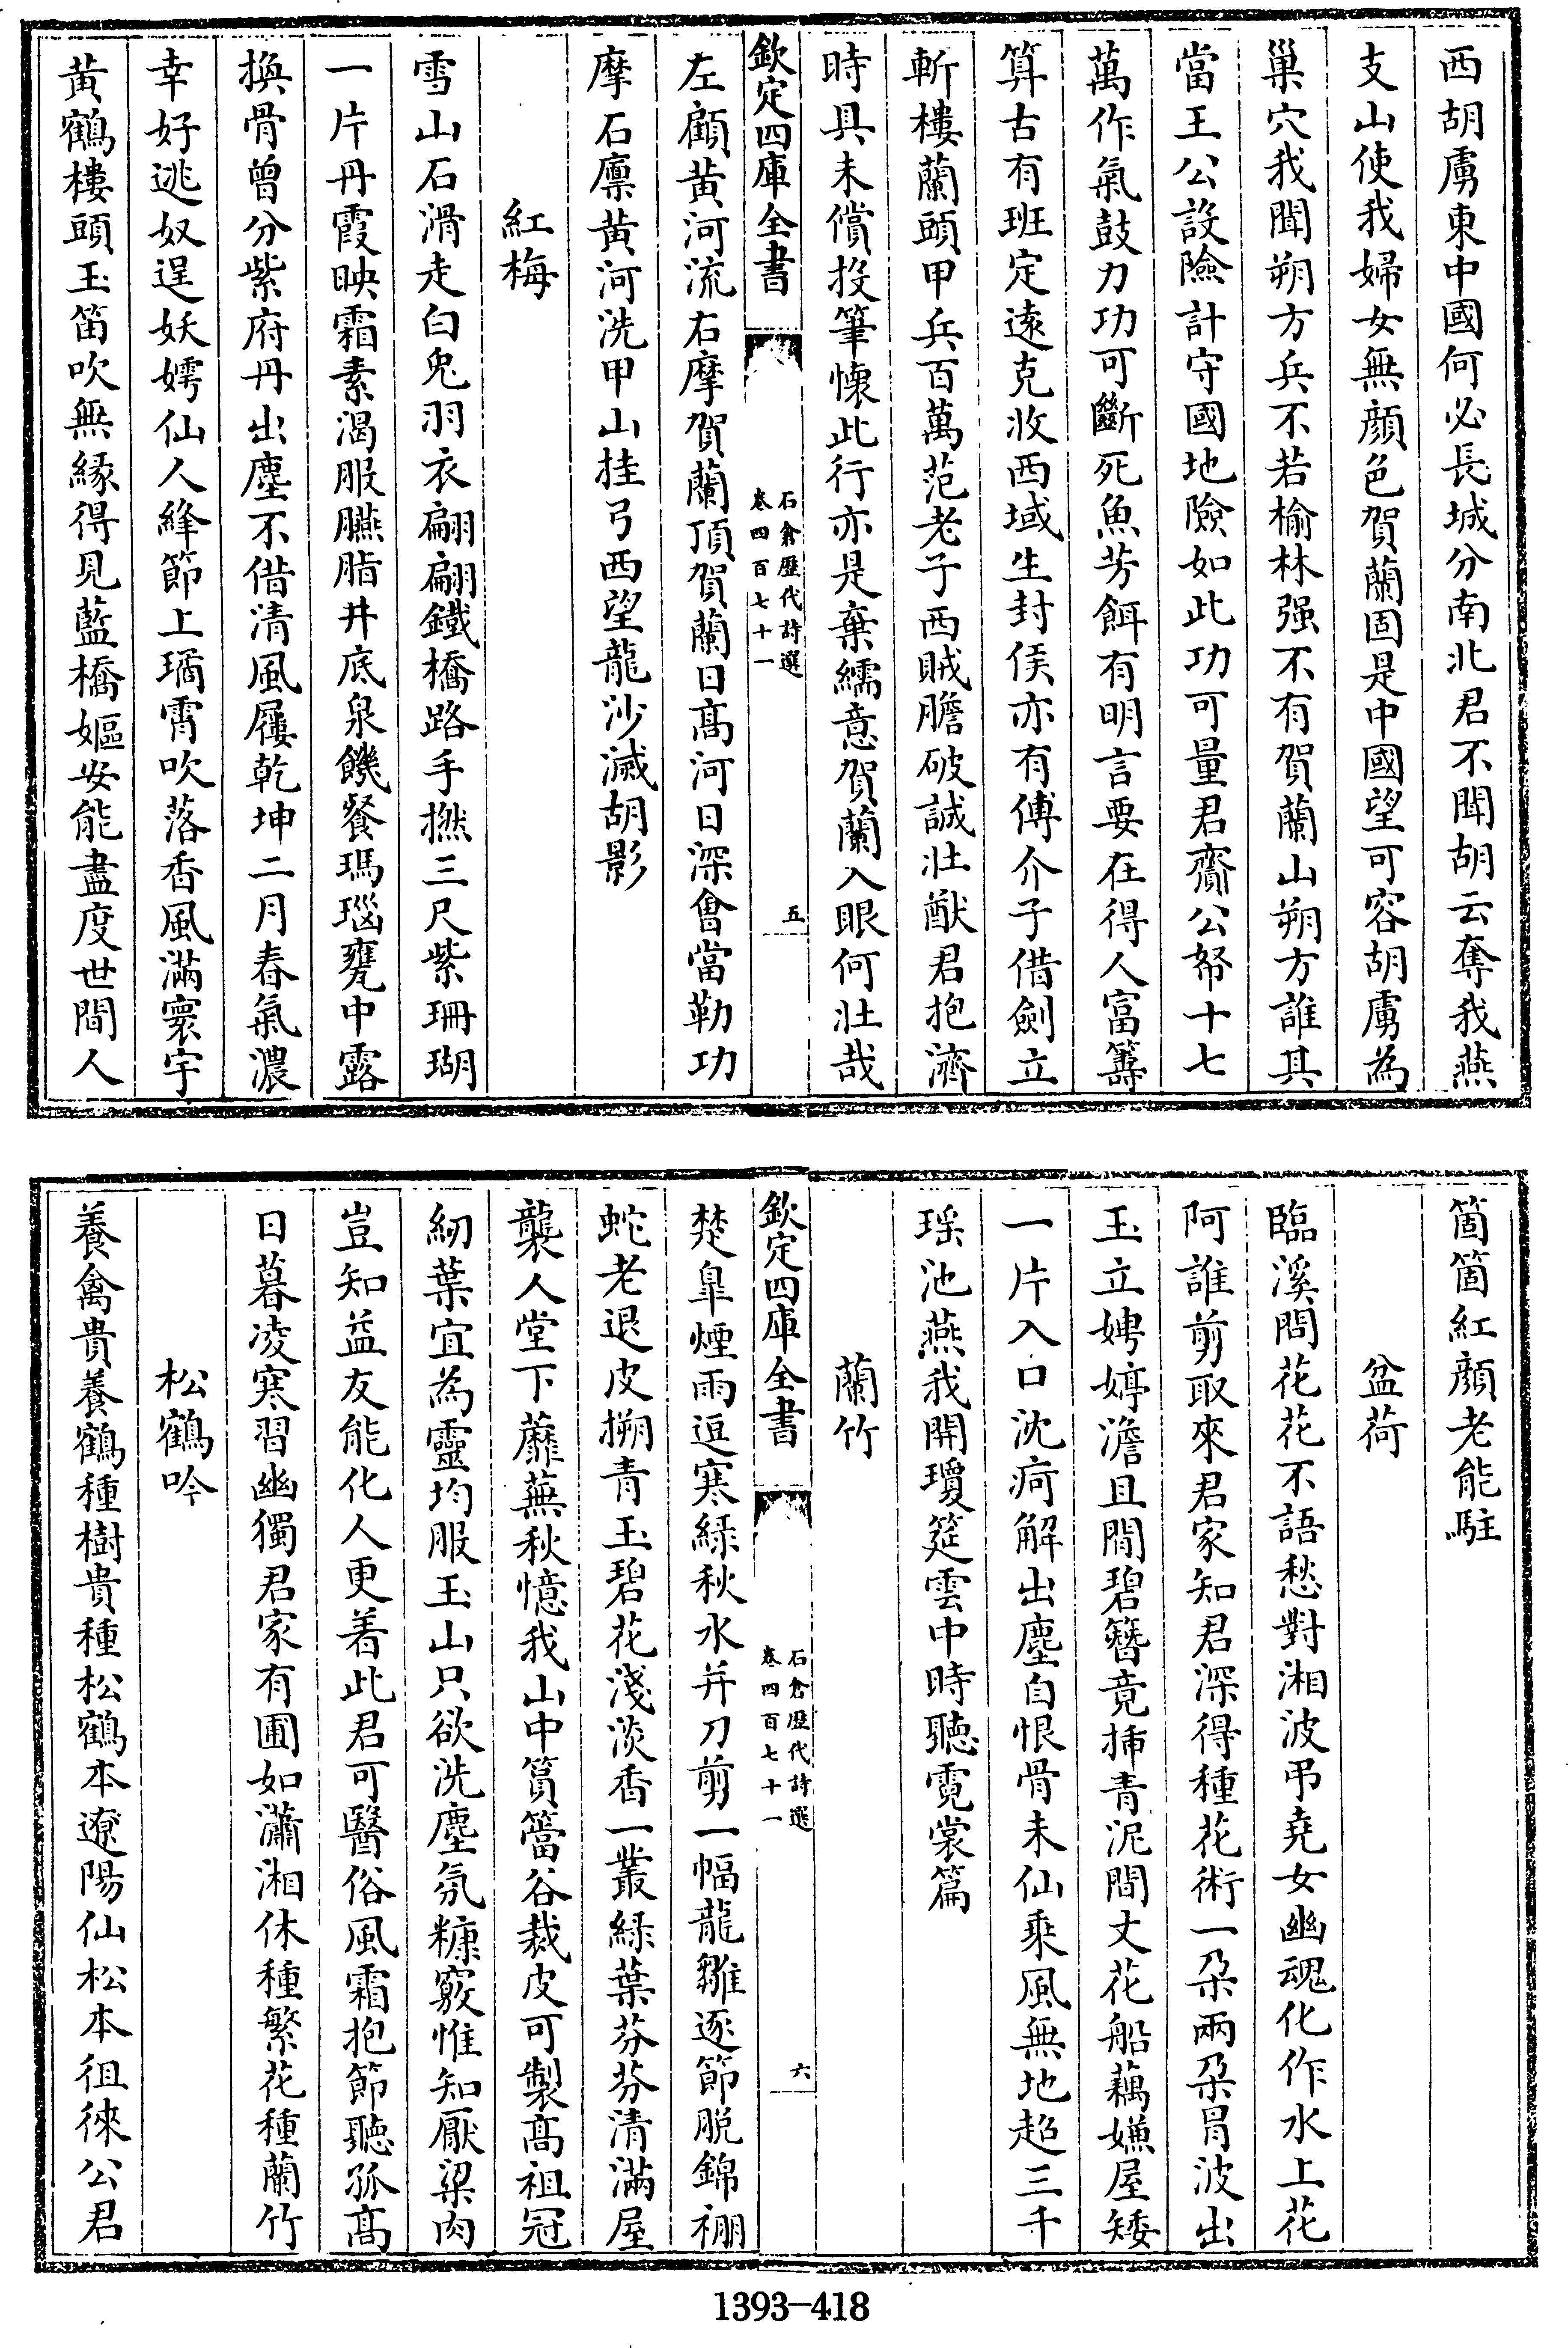 西胡虜東中國何必長城分南北君不聞胡云奪我燕
支山使我婦女無顔色賀蘭固是中國望可容胡虜為
巢穴我聞朔方兵不若榆林强不有賀蘭山朔方誰其
當王公設險計守國地險如此功可量君齎公帑十七
萬作氣鼓力功可斷死魚芳餌有明言要在得人富籌
算古有班定遠克收西域生封侯亦有傅介子借劍立
斬樓蘭頭甲兵百萬范老子西賊膽破誠壯猷君抱濟
時具未償投筆懷此行亦是棄繻意賀蘭入眼何壯哉
欽定四庫全書
石倉歷代詩選
卷四百七十一
五
左顧黃河流右摩賀蘭頂賀蘭日髙河日深會當勒功
摩石廪黃河洗甲山挂弓西望龍沙滅胡影
紅梅
雪山石滑走白兎羽衣翩翩鐵橋路手撚三尺紫珊瑚
一片丹霞映霜素渴服臙脂井底泉饑餐瑪瑙甕中露
換骨曾分紫府丹出塵不借清風屨乾坤二月春氣濃
幸好逃奴逞妖嫮仙人絳節上璚霄吹落香風滿寰宇
黃鶴樓頭玉笛吹無緣得見藍橋嫗安能盡度世間人
箇箇紅顔老能駐
盆荷
臨溪問花花不語愁對湘波弔堯女幽魂化作水上花
阿誰剪取來君家知君深得種花術一朶兩朶冐波出
玉立娉婷澹且閒碧簪竟揷青泥間丈花船藕嫌屋矮
一片入口沈疴解出塵自恨骨未仙乘風無地超三千
瑶池燕我開瓊筵雲中時聽霓裳篇
蘭竹
欽定四庫全書
石倉歷代詩選
卷四百七十一
六
楚臯煙雨逗寒綠秋水并刀剪一幅龍雛逐節脱錦棚
蛇老退皮搠青玉碧花淺淡香一叢緑葉芬芬清滿屋
襲人堂下蘼蕪秋憶我山中篔簹谷裁皮可製髙祖冠
紉葉宜為靈均服玉山只欲洗塵氛糠竅惟知厭粱肉
豈知益友能化人更着此君可醫俗風霜抱節聽孤髙
日暮凌寒習幽獨君家有圃如瀟湘休種繁花種蘭竹
松鶴吟
養禽貴養鶴種樹貴種松鶴本遼陽仙松本徂徠公君
1393-418